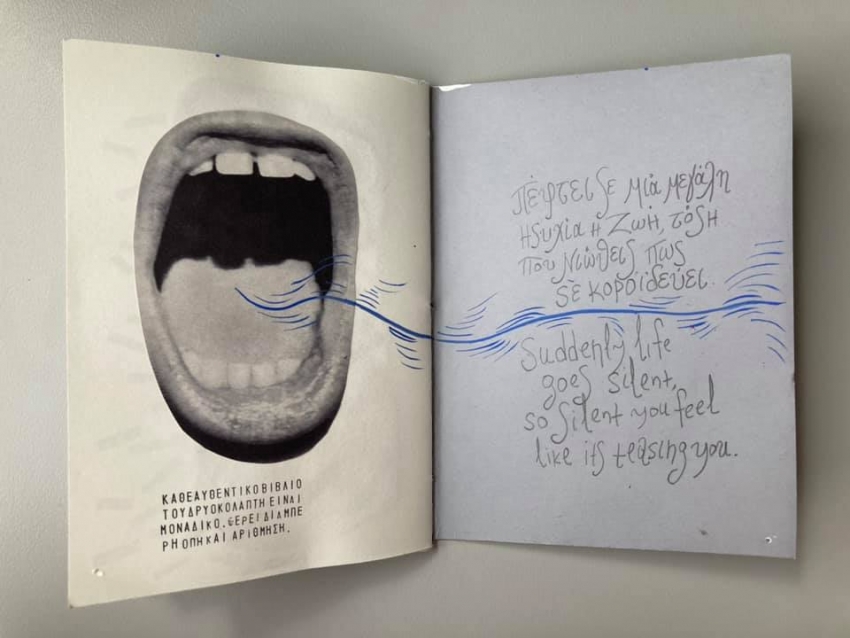 ΚΑΘΕ ΑΥΘΕΝΤΙΚΟ ΒΙΒΛΙΟ
ΤΟΥ ΔΡΥΟΚΟΛΑΠΤΗ ΕΙΝΑΙ
ΜΟΝΑΔΙΚΟ. ΦΕΡΕΙ ΔΙΑΜΠΕ
ΡΗ ΟΠΗ ΚΑΙ ΑΡΙΘΜΗΣΗ.
Πέφτει σε μιὰ μεγάλη
ἡσυχία ἡ Ζωή, τόση
που νιώθεις πως
σὲ κοροϊδεύει.
Suddenly life
goes silent,
so silent you feel
like its teasing you.